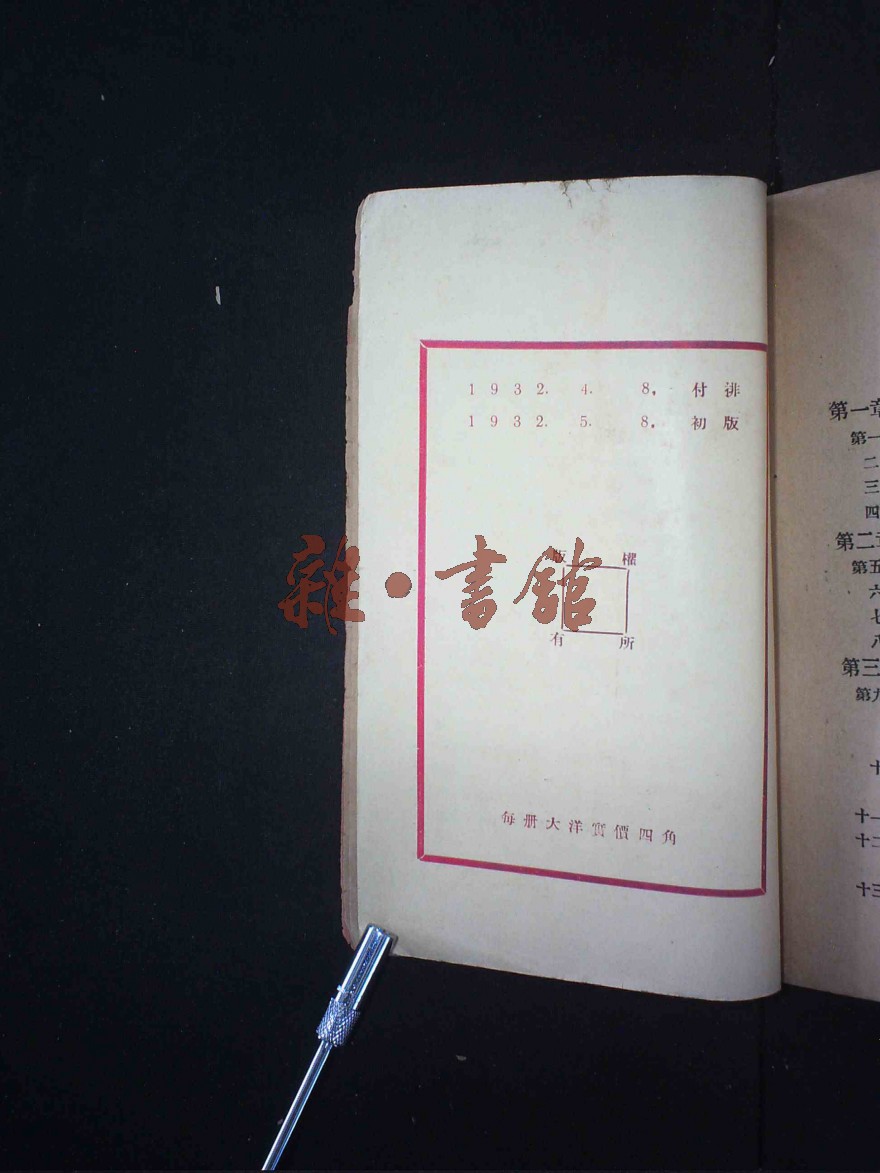 1932. 4. 8, 付排
1932. 5. 8, 初版
版權
有所
每册大洋實價四角
雜·書館
第一章
第一
二
三
四
第二章
第五
六
七
八
第三
第九
十
十一
十二
十三